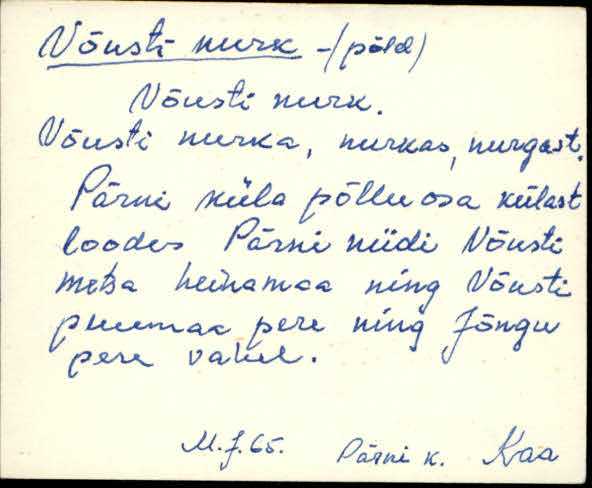 Võusti nurk - (põld)
Võusti nurk.
Võusti nurka, nurkas, nurgast.
Pärni küla põlluosa külast
loodes Pärni niidi Võusti
metsa heinamaa ning Võusti
puumaa pere ning Jõngu
pere vahel.
M.J.65. Pärni k. Kaa